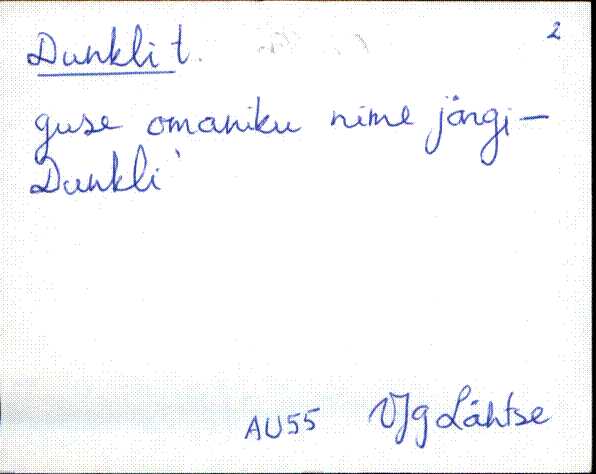 2
Dunkli t.
guse omaniku nime järgi —
Dunkli
AU55 VJg Lähtse